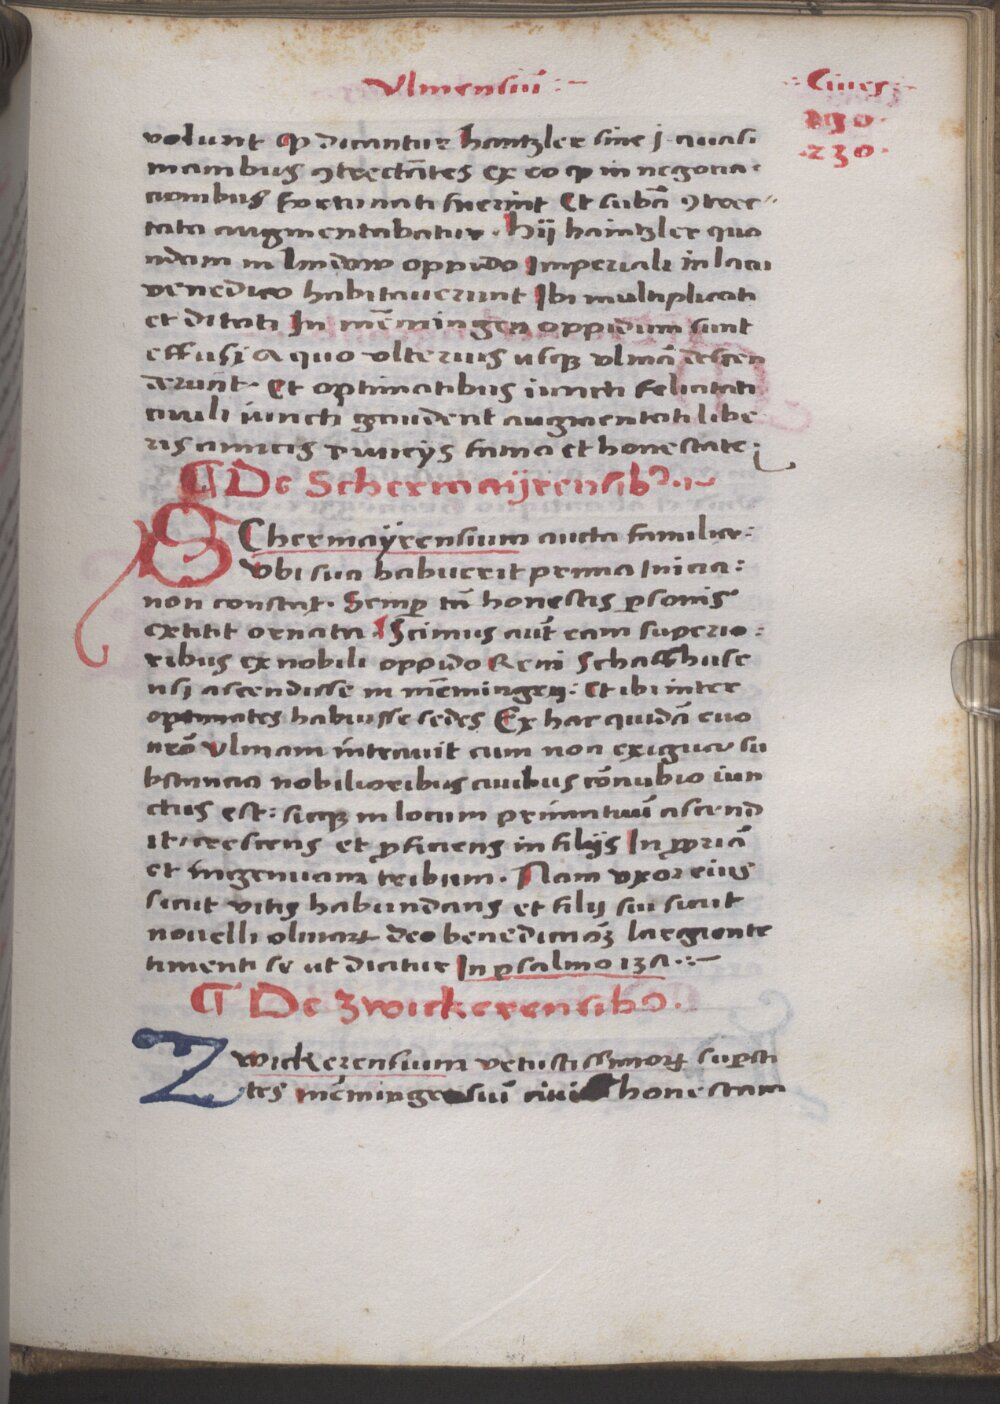 Vlmensiū :~
Ciues
190
230
volunt ꝙ dicantur hantzler sine j quasi
manibus ꝯtrectātes ex eo ꝙ in negocia-
cionibus fortunati fuerint Et subā ꝯtrec-
tata augmentabatur. hij haintzler quo
ndam in lindow oppido Imperiali in lacu
venedico habitauerunt Ibi multiplicati
et ditati In mēmingen oppidum sunt
effusi A quo vlterius usqꝫ vlmā descen
derunt. Et optimatibus iuncti felicitati
ciuili iuncti gaudent augmentati libe
ris amicis diuicijs fama et honestate;
¶ De Schermayrensibꝰ.~
SChermaÿrensium aucta familia:
Vbi sua habuerit prima Inicia:
non constat. Semꝑ tn̄ honestis ꝑsonis
extitit ornata. Scimus aūt eam superio:
ribus ex nobili oppido Reni Schaffhuse
nsi ascendisse in mēmingen: Et ibi inter
optimates habuisse sedes Ex hac quidā euo
nr̄o Vlmam intrauit cum non exigua su
bstancia nobilioribus ciuibus cōnubio iun
ctus est: sicqꝫ in locum primatiuū ascend
it: crescens et ꝓficiens in filijs In ꝓpriā
et ingenuam tribum. Nam vxor eius
sicut vitis habundans et filij sui sicut
nouelli oliuarꝝ deo benedictiōꝫ largiente
timenti se ut dicitur In psalmo 131.:~
¶ De Zwickerensibꝰ.
Zwickerensium vetustissimorꝝ suꝑsti
tes mēmingensiū ciuiū honestam